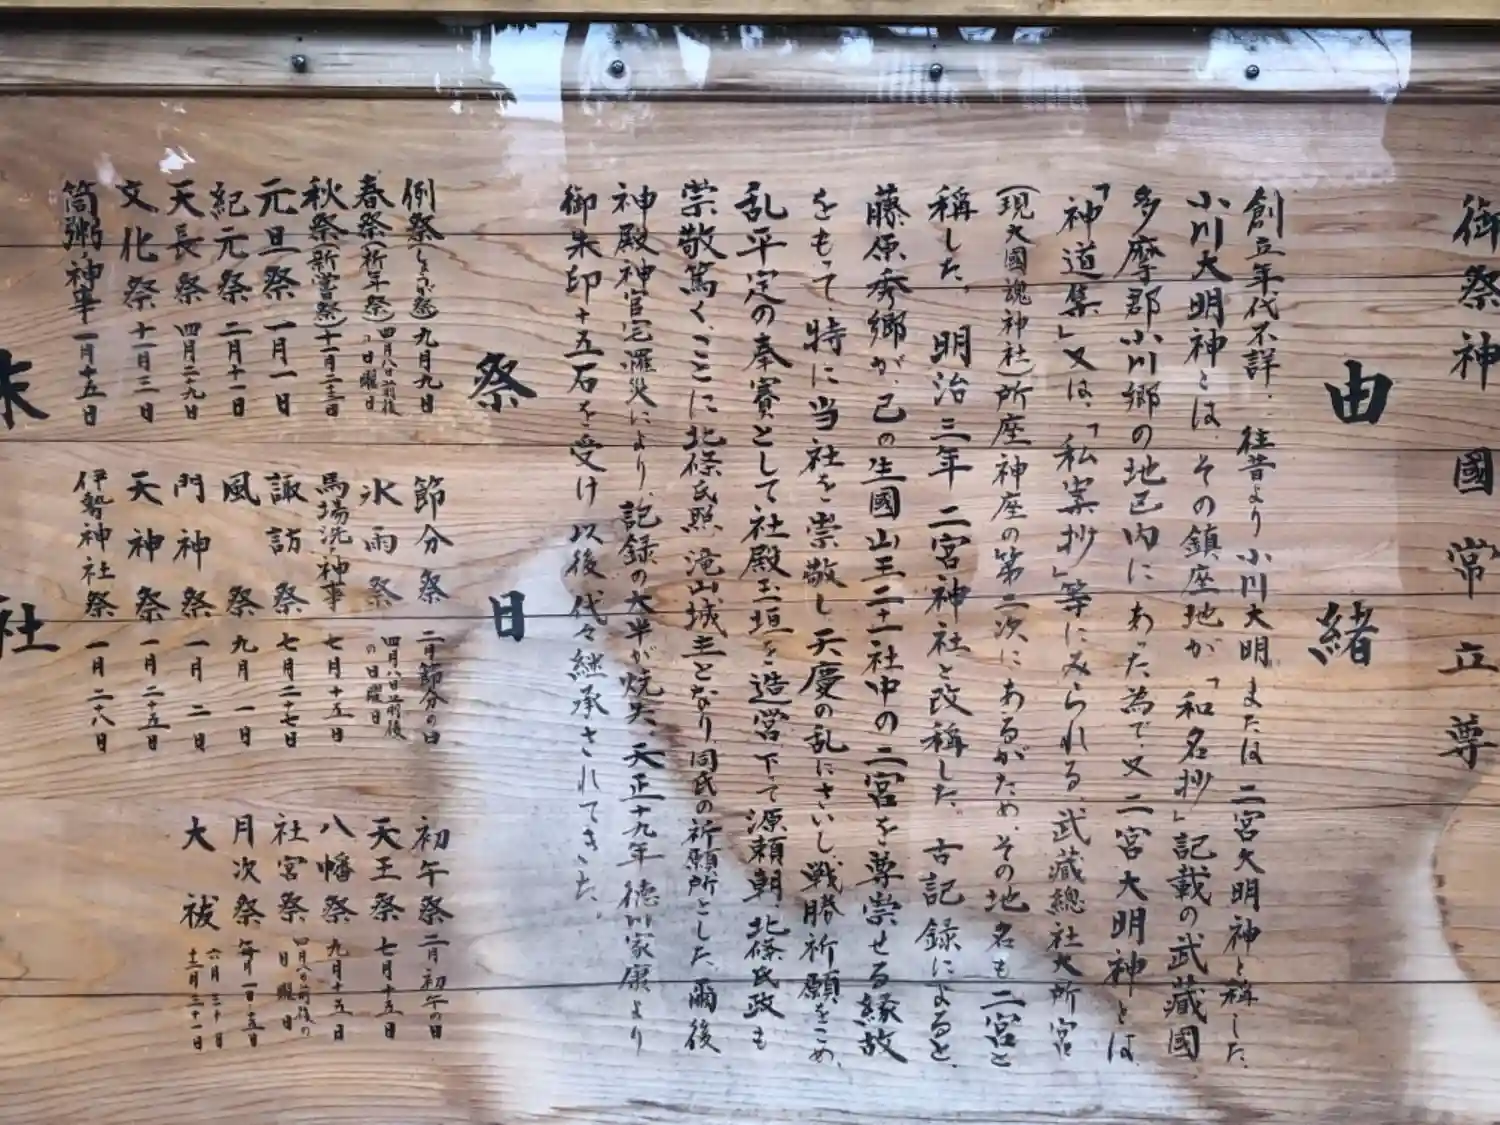 御祭神 國常立尊
由緒
創立年代不詳、往昔より小川大明神または二宮大明神と称した。
小川大明神とは、その鎮座地が「和名抄」記載の武蔵國
多摩郡小川郷の地已内にあった為で、又二宮大明神とは、
「神道集」又は、「私案抄」等にみられる、武蔵總社六所宮
(現大國魂神社)所座神座の第二次にあるがため、その地名も二宮と
稱した。 明治三年 二宮神社と改稱した。 古記録によると、
藤原秀郷が、己の生國山王二十一社中の二宮を尊崇せる縁故
をもって、特に当社を崇敬し天慶の乱にさいし、戦勝祈願をこめ、
乱平定の奉賽として社殿玉垣を造営、下て源頼朝、北條氏政も
崇敬篤く、ここに北條氏照、滝山城主となり、同氏の祈願所とした、爾後
神殿神官宅罹災により、記録の大半が焼失、天正十九年 徳川家康より
御朱印十五石を受け 以後 代々継承されてきた。
祭日
例祭(しょうが祭) 九月九日
春祭(祈年祭) 四月八日前後の日曜日
秋祭(新嘗祭) 十一月二三日
元旦祭 一月一日
紀元祭 二月十一日
天長祭 四月二九日
文化祭 十一月三日
筒粥ノ神事 一月十五日
節分祭 二月節分の日
氷雨祭 四月八日前後の日曜日
馬場洗ノ神事 七月十五日
諏訪祭 七月二十七日
風祭 九月一日
門神祭 一月二日
天神祭 一月二十五日
伊勢神社祭 一月二十八日
初午祭 二月初午の日
天王祭 七月十五日
八幡祭 九月十五日
社宮祭 四月八日前後の日曜日
月次祭 毎月一日・十五日
大祓 六月三十日 十二月三十一日
末社